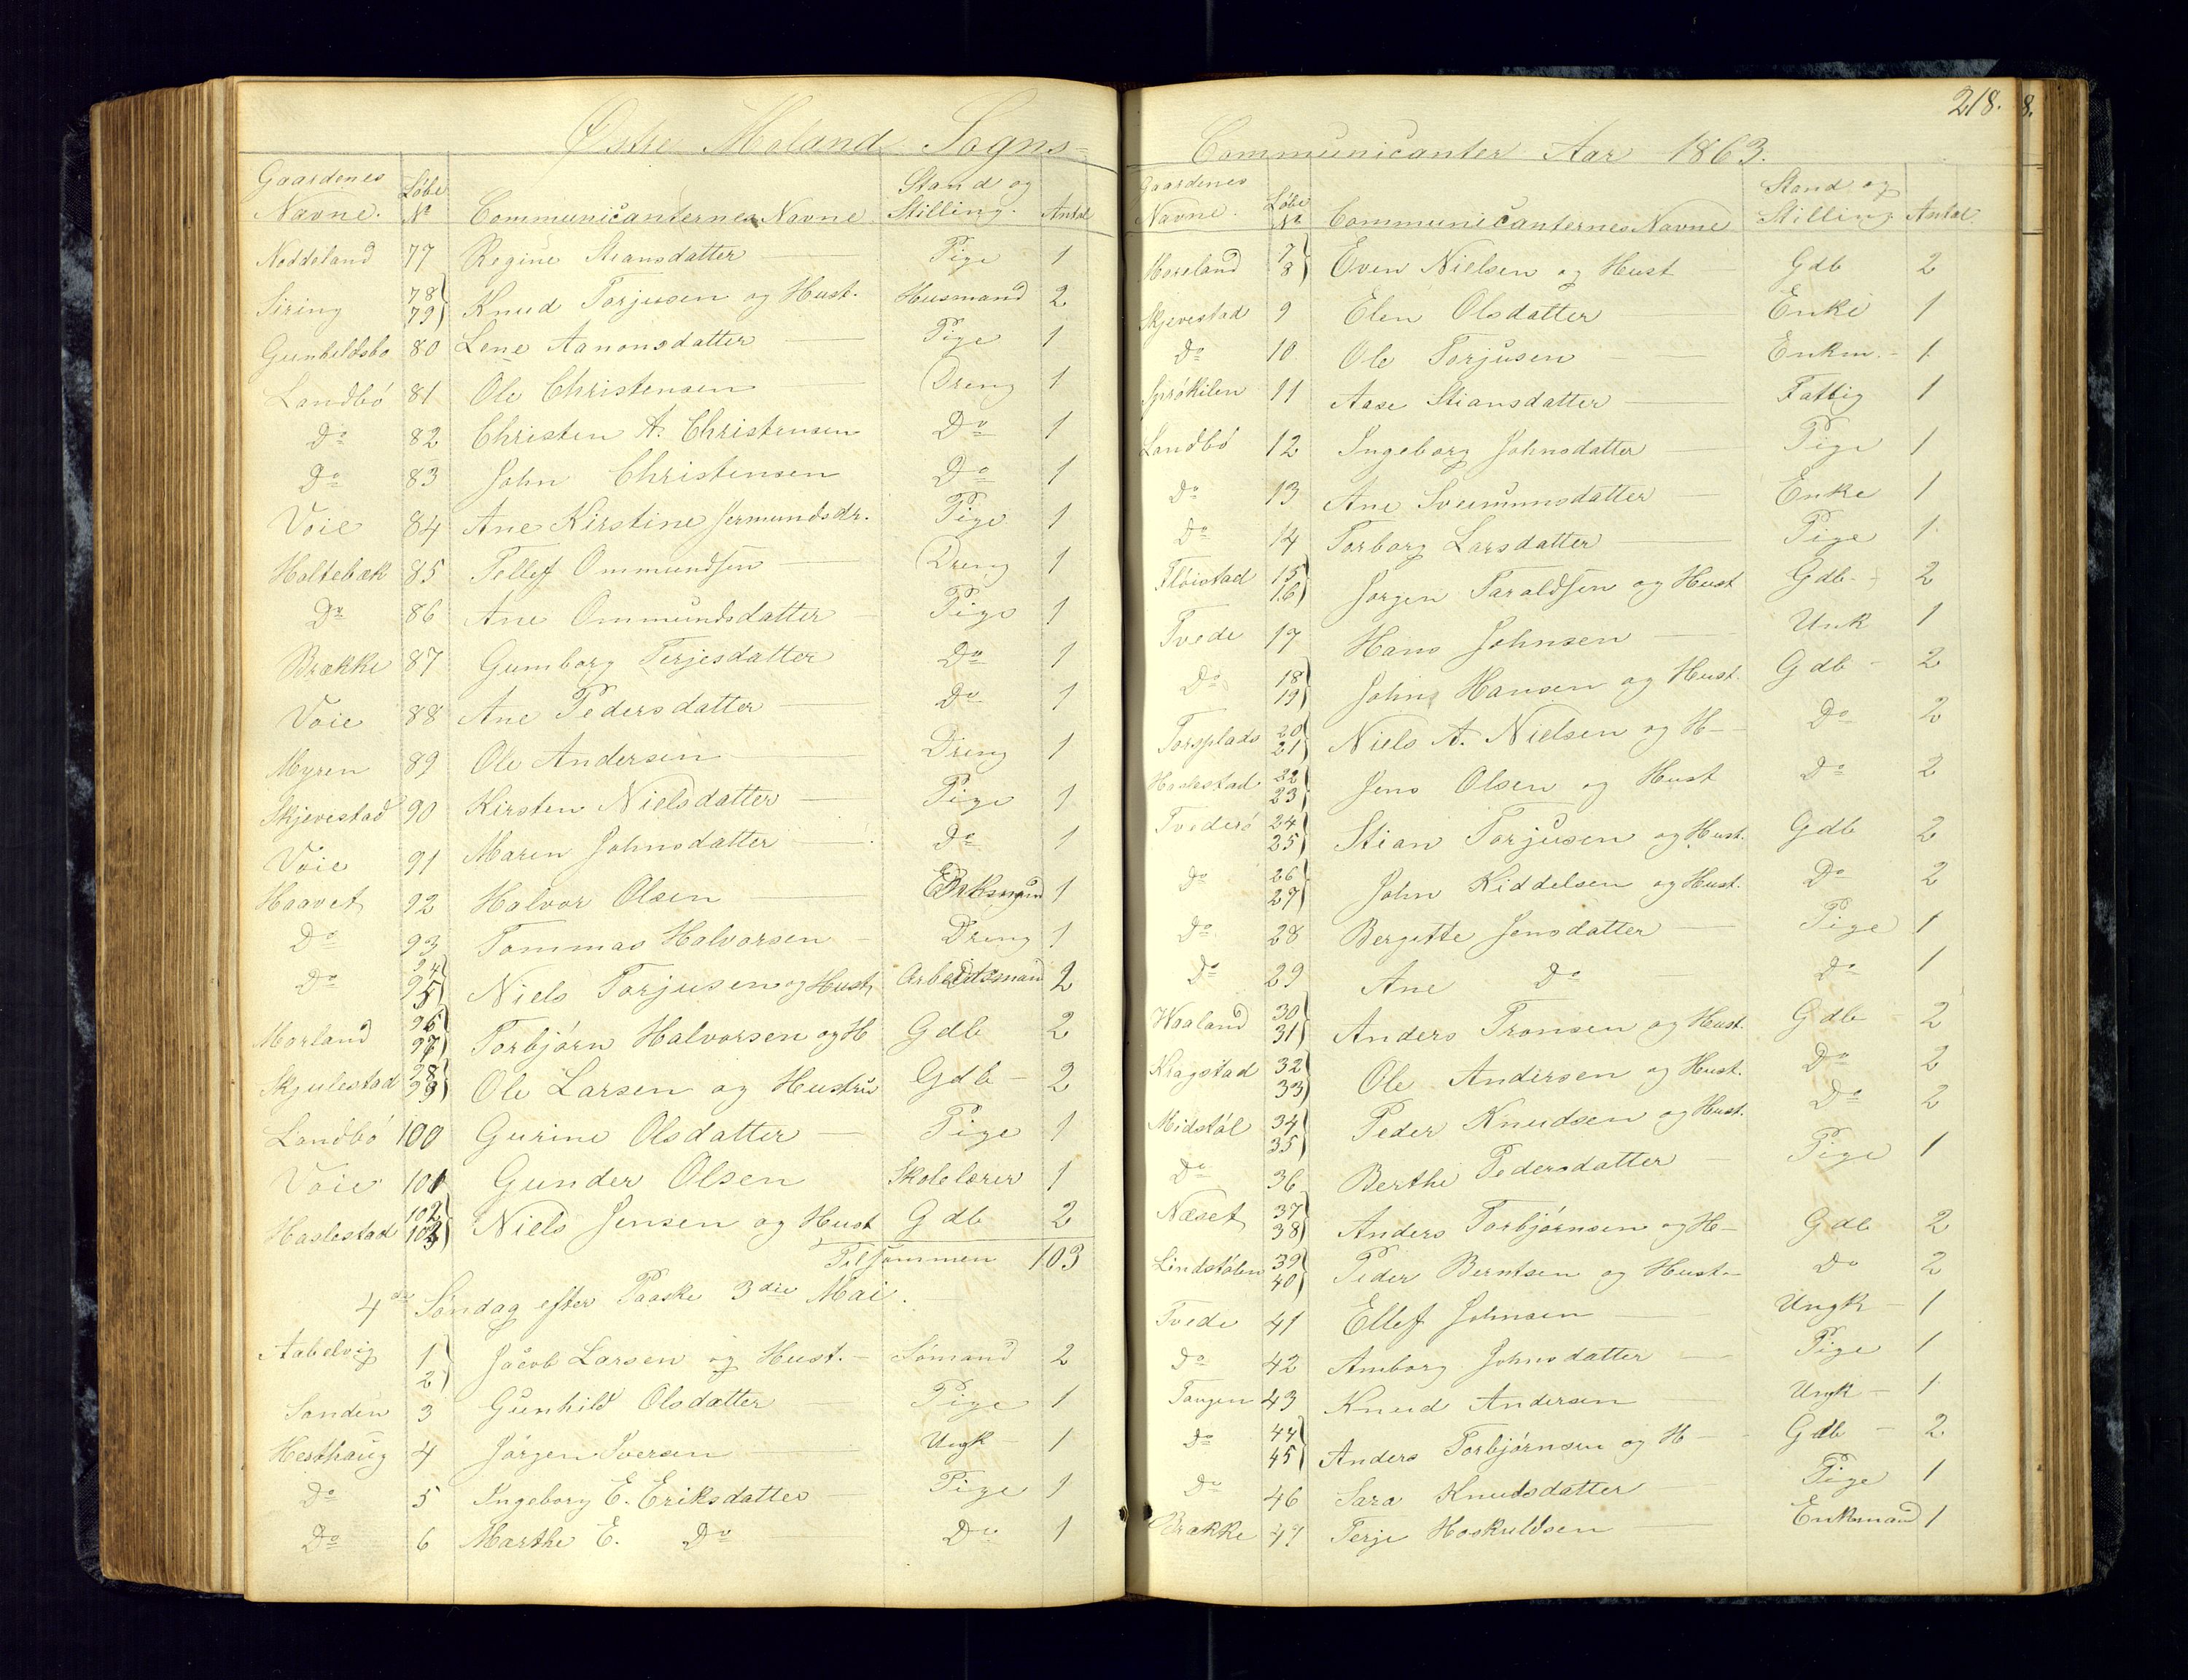 Østre Moland Sogns=
Gaardenes Navne. Løbe No Communicanternes Navne Stand og Stilling. Antal
Neddeland 77 Regine Stiansdatter Pige 1
Siring 78 79 Knud Torjusen og Hust. Husmand 2
Gunhildsbo 80 Lene Aanonsdatter Pige 1
Landbö 81 Ole Christensen Dreng 1
Do 82 Christen A. Christensen Do 1
Do 83 John Christensen Do 1
Voie 84 Ane Kirstine Jermundsdr. Pige 1
Holtebæk 85 Tellef Ommundsen Dreng 1
Do 86 Ane Ommundsdatter Pige 1
Brække 87 Gumborg Terjesdatter Do 1
Voie 88 Ane Pedersdatter Do 1
Myren 89 Ole Andersen Dreng 1
Skjevestad 90 Kirsten Nielsdatter Pige 1
Voie 91 Maren Johnsdatter Do 1
Haavet 92 Halvor Olsen 1
Do 93 Tommas Halvorsen Dreng 1
Do 94 95 Niels Torjusen og Hust, Arbeidsmand 2
Morland 96 97 Torbjörn Halvorsen og H Gdb 2
Skjulestad 98 99 Ole Larsen og Hustru Gdb 2
Landbö 100 Gurine Olsdatter Pige 1
Voie 101 Gunder Olsen Skolelærer 1
Haslestad 102 103 Niels Jensen og Hust Gdb 2
Tilsammen 103
4de Söndag efter Paaske 3die Mai.
Aabelvig 1 2 Jacob Larsen og Hust. Sömand 2
Sanden 3 Gunhild Olsdatter Pige 1
Hesthaug 4 Jörgen Iversen Ungk 1
Do 5 Ingeborg E. Eriksdatter Pige 1
Do 6 Marthe E. Do Do 1
218.
Communicanter Aar 1863.
Gaardenes Navne. Løbe No Communicanternes Navne Stand og Stilling Antal
Moreland 7 8 Even Nielsen og Hust Gdb 2
Skjevestad 9 Elen Olsdatter Enke 1
Do 10 Ole Torjusen Enkm. 1
Sprökilen 11 Aase Stiansdatter Fattig 1
Landbö 12 Ingeborg Johnsdatter Pige 1
Do 13 Ane Sveinunsdatter Enke 1
Do 14 Torborg Larsdatter Pige 1
Flöistad 15 16 Jörgen Taraldsen og Hust Gdb. 2
Tvede 17 Hans Johnsen Unk 1
Do 18 19 John Hansen og Hust. Gdb 2
Torsplads 20 21 Niels A. Nielsen og H Do 2
Haslestad 22 23 Jens Olsen og Hust Do 2
Tvederö 24 25 Stian Torjusen og Hust. Gdb 2
Do 26 27 John Kiddelsen og Hust. Do 2
Do 28 Bergitte Jensdatter Pige 1
Do 29 Ane Do Do 1
Waaland 30 31 Anders Tronsen og Hust. Gdb 2
Kragstad 32 33 Ole Andersen og Hust. Do 2
Midstöl 34 35 Peder Knudsen og Hust. Do 2
Do 36 Berthe Pedersdatter Pige 1
Næset 37 38 Anders Torbjörnsen og H Gdb 2
Lindstölen 39 40 Peder Berntsen og Hust Do 2
Tvede 41 Ellef Johnsen Ungk 1
Do 42 Amborg Johnsdatter Pige 1
Tangen 43 Knud Andersen Ungk 1
Do 44 45 Anders Torbjörnsen og H Gdb 2
Do 46 Sara Knudsdatter Pige 1
Brække 47 Terje Hoskuldsen Enkmand 1